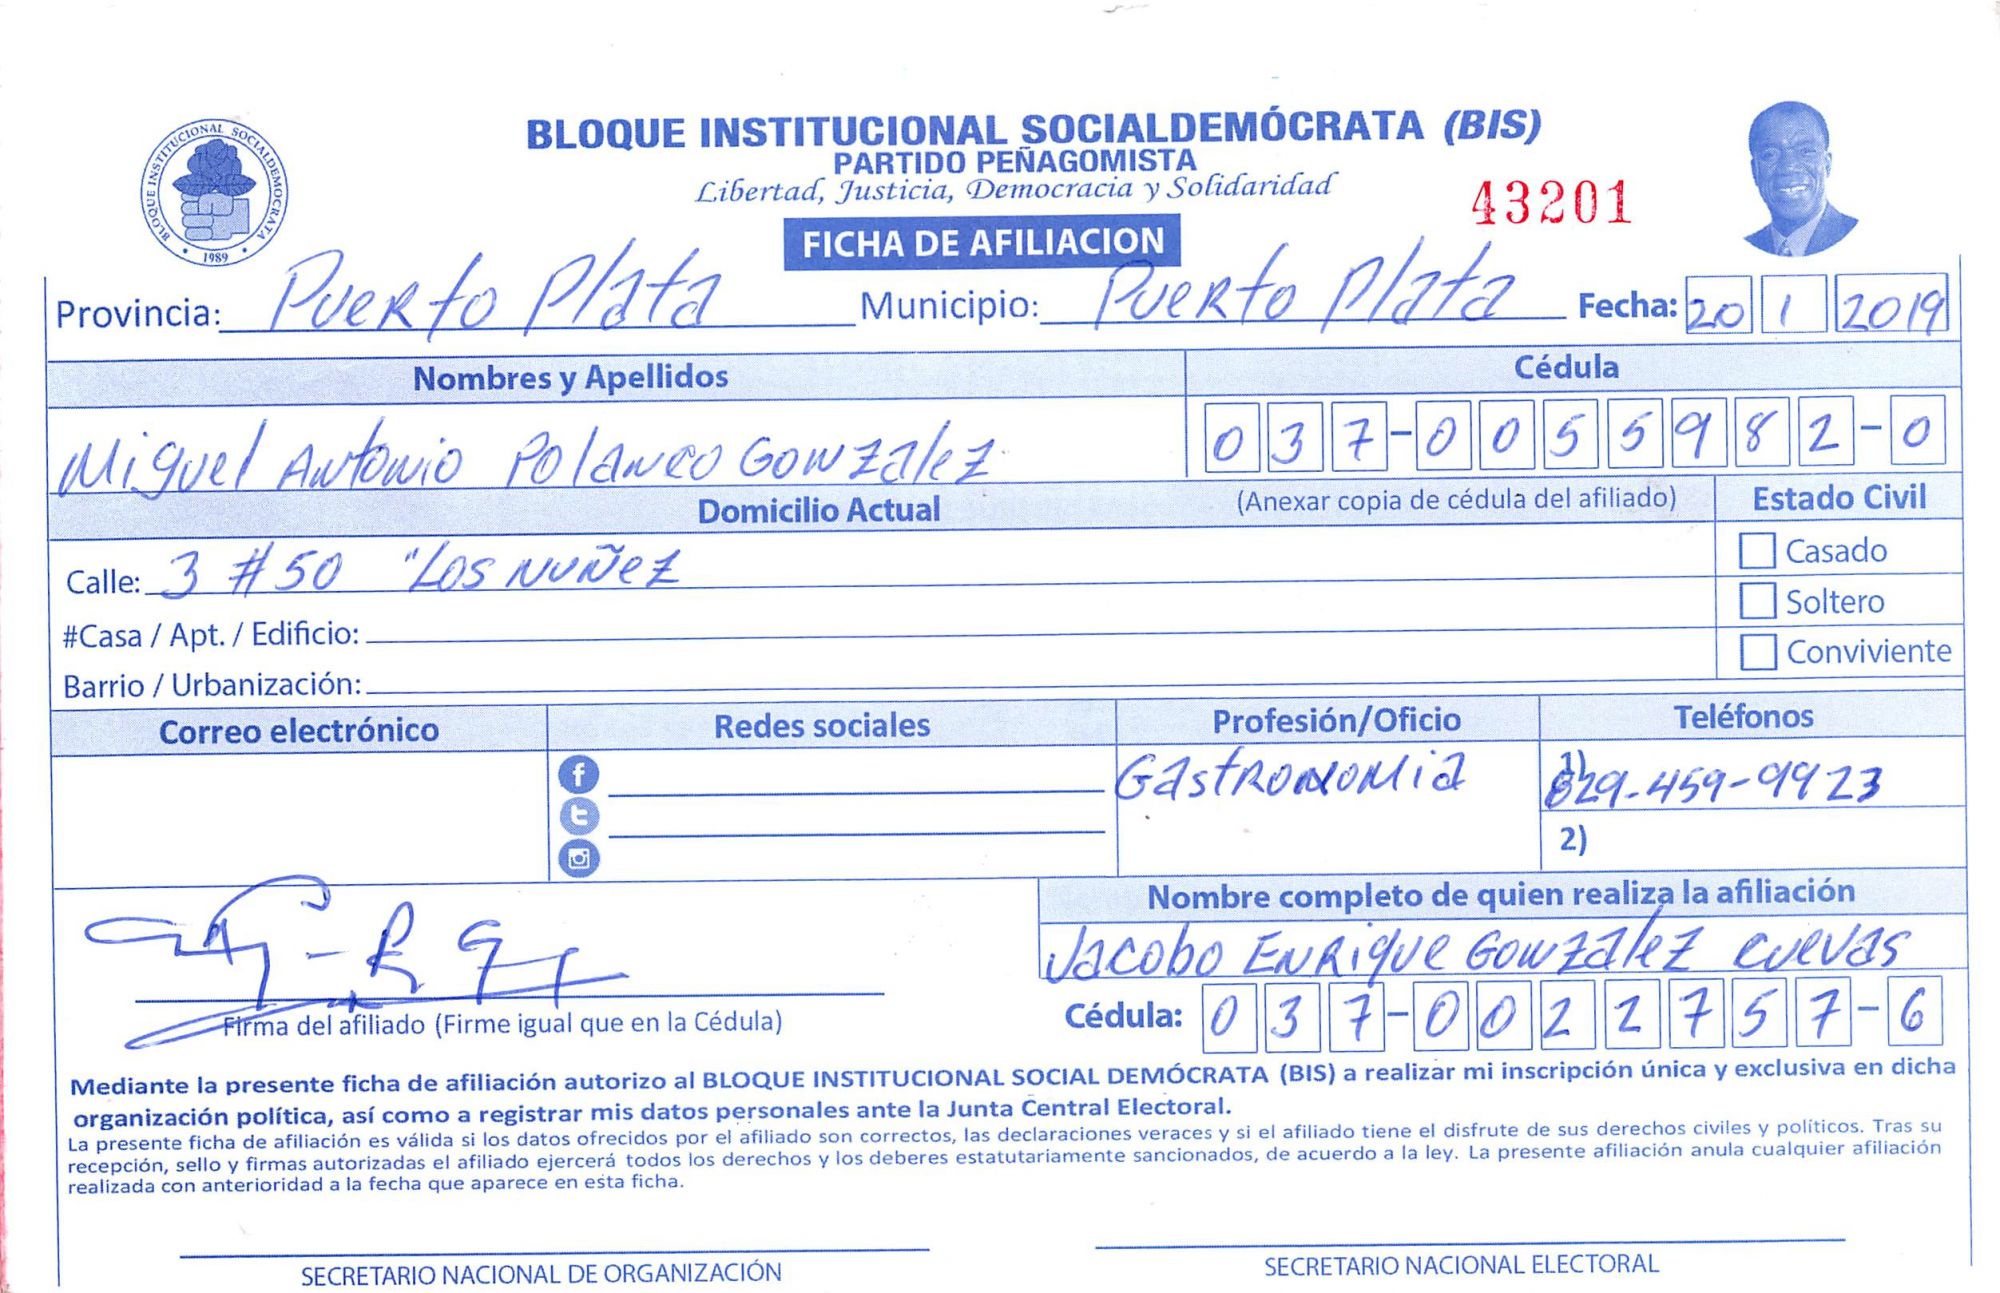 BLOQUE INSTITUCIONAL SOCIALDEMÓCRATA
1989
BLOQUE INSTITUCIONAL SOCIALDEMÓCRATA (BIS)
PARTIDO PEÑAGOMISTA
Libertad, Justicia, Democracia y Solidaridad
43201
FICHA DE AFILIACION
Provincia: Puerto Plata Municipio: Puerto Plata Fecha: 20 1 2019
Nombres y Apellidos Cédula
Miguel Antonio Polanco Gonzalez 037-0055982-0
Domicilio Actual (Anexar copia de cédula del afiliado) Estado Civil
Calle: 3 #50 "Los Nuñez Casado
#Casa / Apt. / Edificio: Soltero
Barrio / Urbanización: Conviviente
Correo electrónico Redes sociales Profesión/Oficio Teléfonos
Gastronomia 1) 829-459-9923
2)
Nombre completo de quien realiza la afiliación
Jacobo Enrique Gonzalez Cuevas
Firma del afiliado (Firme igual que en la Cédula) Cédula: 037-0022757-6
Mediante la presente ficha de afiliación autorizo al BLOQUE INSTITUCIONAL SOCIAL DEMÓCRATA (BIS) a realizar mi inscripción única y exclusiva en dicha
organización política, así como a registrar mis datos personales ante la Junta Central Electoral.
La presente ficha de afiliación es válida si los datos ofrecidos por el afiliado son correctos, las declaraciones veraces y si el afiliado tiene el disfrute de sus derechos civiles y políticos. Tras su
recepción, sello y firmas autorizadas el afiliado ejercerá todos los derechos y los deberes estatutariamente sancionados, de acuerdo a la ley. La presente afiliación anula cualquier afiliación
realizada con anterioridad a la fecha que aparece en esta ficha.
SECRETARIO NACIONAL DE ORGANIZACIÓN SECRETARIO NACIONAL ELECTORAL